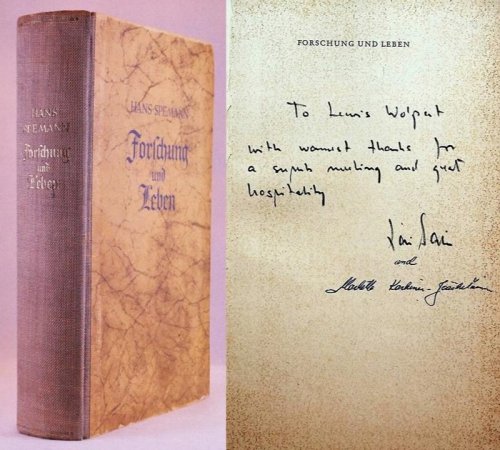 HANS
SPEMANN
Forschung
und
Leben
HANS SPEMANN
Forschung
und
Leben
FORSCHUNG UND LEBEN
To Lewis Wolpert
with warmest thanks for
a superb meeting and great
hospitality
and